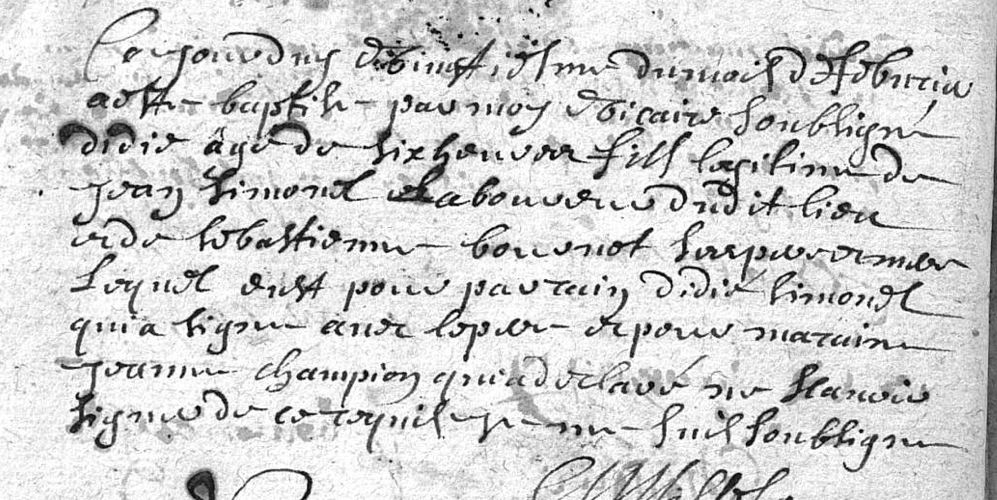 Ce jourduy vingtiesme du mois de febvrier
a este baptise par moy vicaire soubsigne
didié agé de six heures fils legitime de
jean simonel laboureur dudit lieu
et de sebastienne bouvenot ses pere et mere
lequel eust pour parrain didié simonel
qui a signe avec le pere et pour maraine
jeanne champion qui a declaré ne scavoir
signer de ce requise je me suis soubsigne